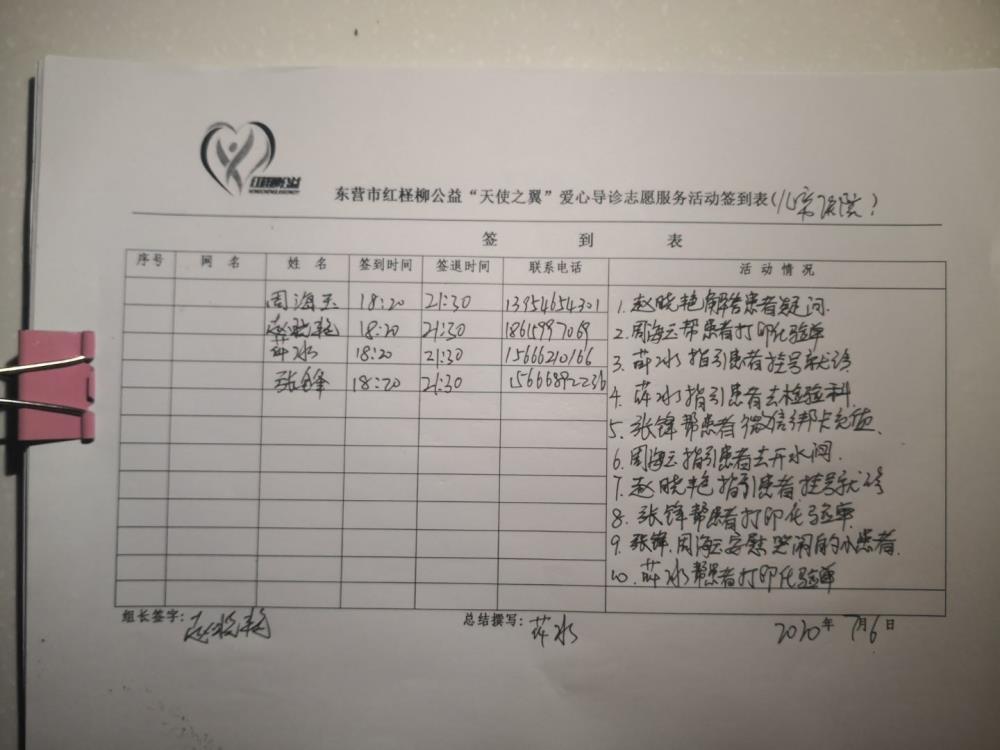 红柽柳公益
东营市红柽柳公益“天使之翼”爱心导诊志愿服务活动签到表(儿童医院)
签 到 表
序号 网 名 姓 名 签到时间 签退时间 联系电话 活 动 情 况
周海云 18:20 21:30 13954654301
赵晓艳 18:20 21:30 18615997069
薛冰 18:20 21:30 15666210166
张锋 18:20 21:30 15666892236
1. 赵晓艳解答患者疑问.
2. 周海云帮患者打印化验单
3. 薛冰指引患者挂号就诊
4. 薛冰指引患者去检验科.
5. 张锋帮患者微信绑卡充值.
6. 周海云指引患者去开水间.
7. 赵晓艳指引患者挂号就诊
8. 张锋帮患者打印化验单.
9. 张锋.周海云安慰哭闹的小患者.
10. 薛冰帮患者打印化验单
组长签字: 赵晓艳 总结撰写: 薛冰 2020年7月6日